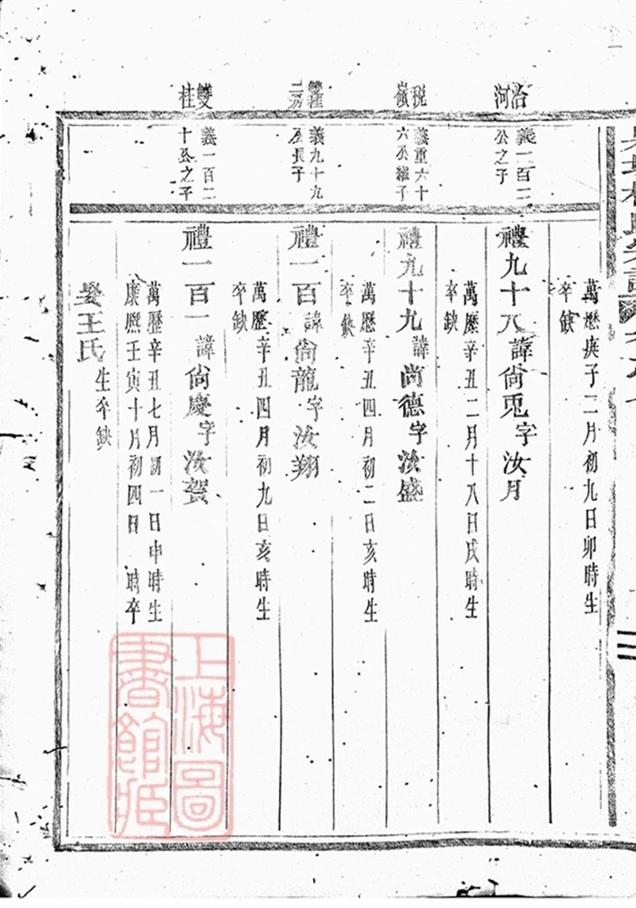 冶河
義一百二公之子
禮九十八諱尙兎字汝月
萬歷庚子二月初九日卯時生
卒缺
稅嶺
義重六十六公繼子
禮九十九諱尙德字汝盛
萬歷辛丑二月十八日戌時生
卒缺
義九十九公長子
禮一百諱尙龍字汝翔
萬歷辛丑四月初二日亥時生
卒缺
雙桂
義一百二十公之子
禮一百一諱尙慶字汝賀
萬歷辛丑四月初九日亥時生
卒缺
萬歷辛丑七月初一日申時生
康熙壬寅十月初四日 時卒
娶王氏生卒缺
上海圖書館藏